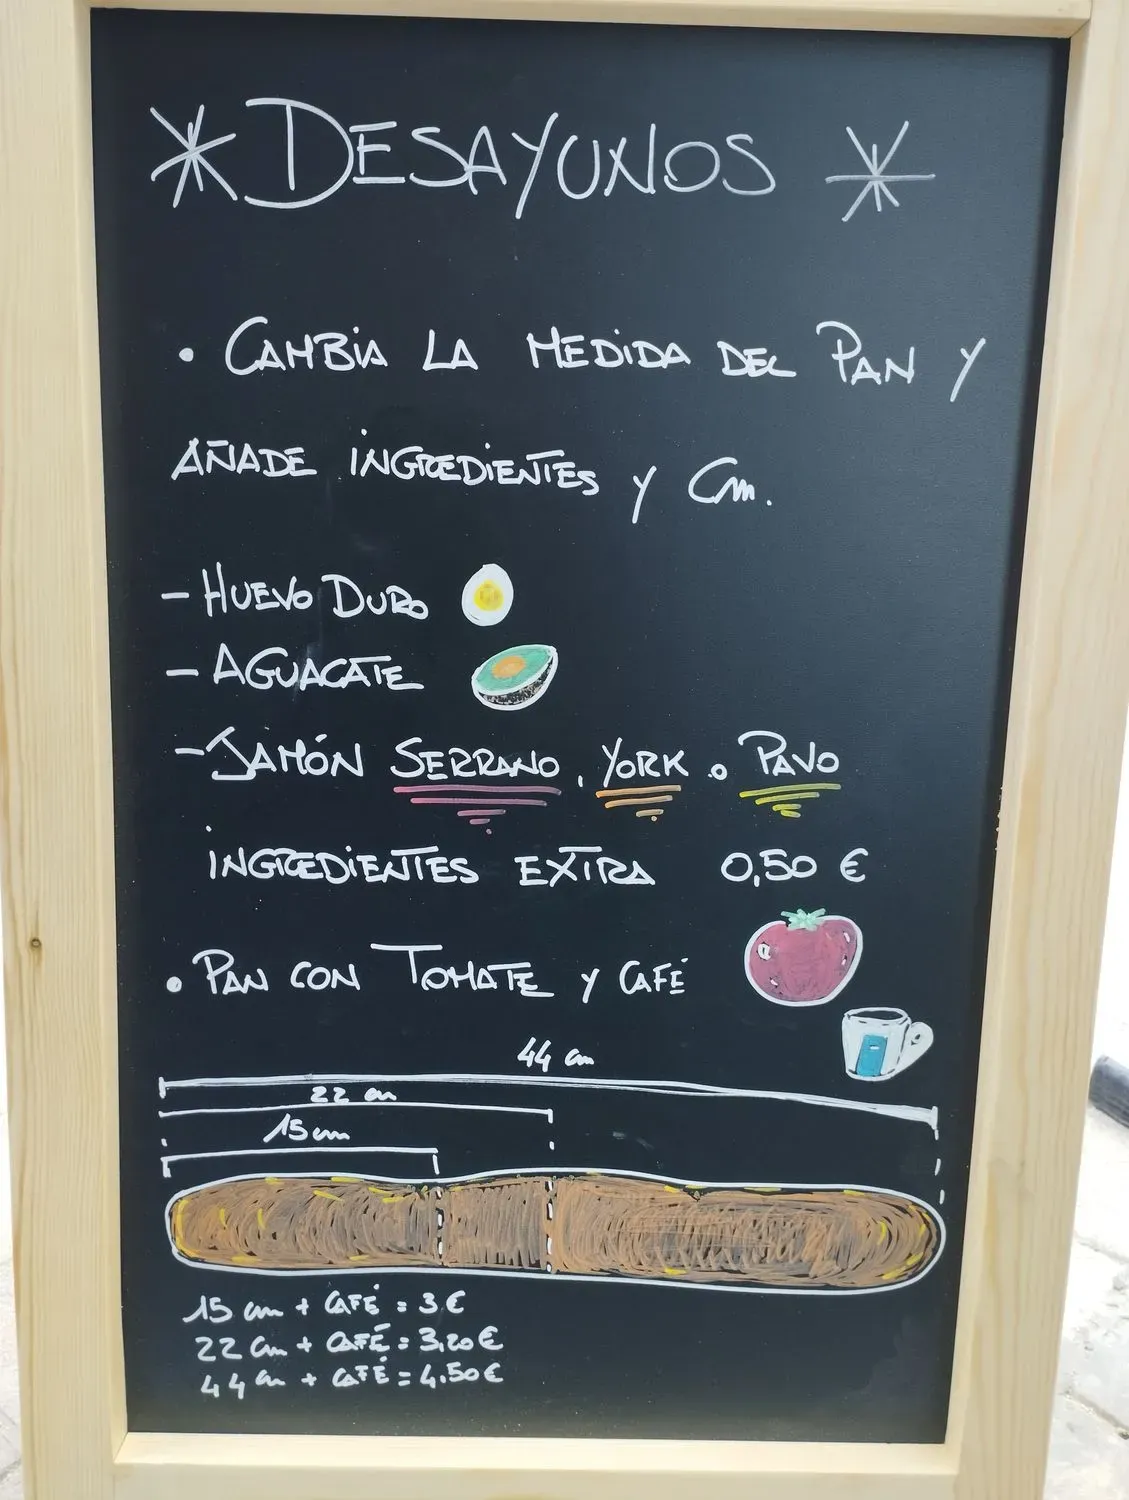 * DESAYUNOS *
• CAMBIA LA MEDIDA DEL PAN Y
AÑADE INGREDIENTES Y Cm.
- HUEVO DURO
- AGUACATE
- JAMÓN SERRANO, YORK o PAVO
INGREDIENTES EXTRA 0,50 €
• PAN CON TOMATE Y CAFÉ
44 cm
22 cm
15 cm
15 cm + CAFÉ = 3 €
22 Cm + CAFÉ = 3,20 €
44 cm + CAFÉ = 4,50 €